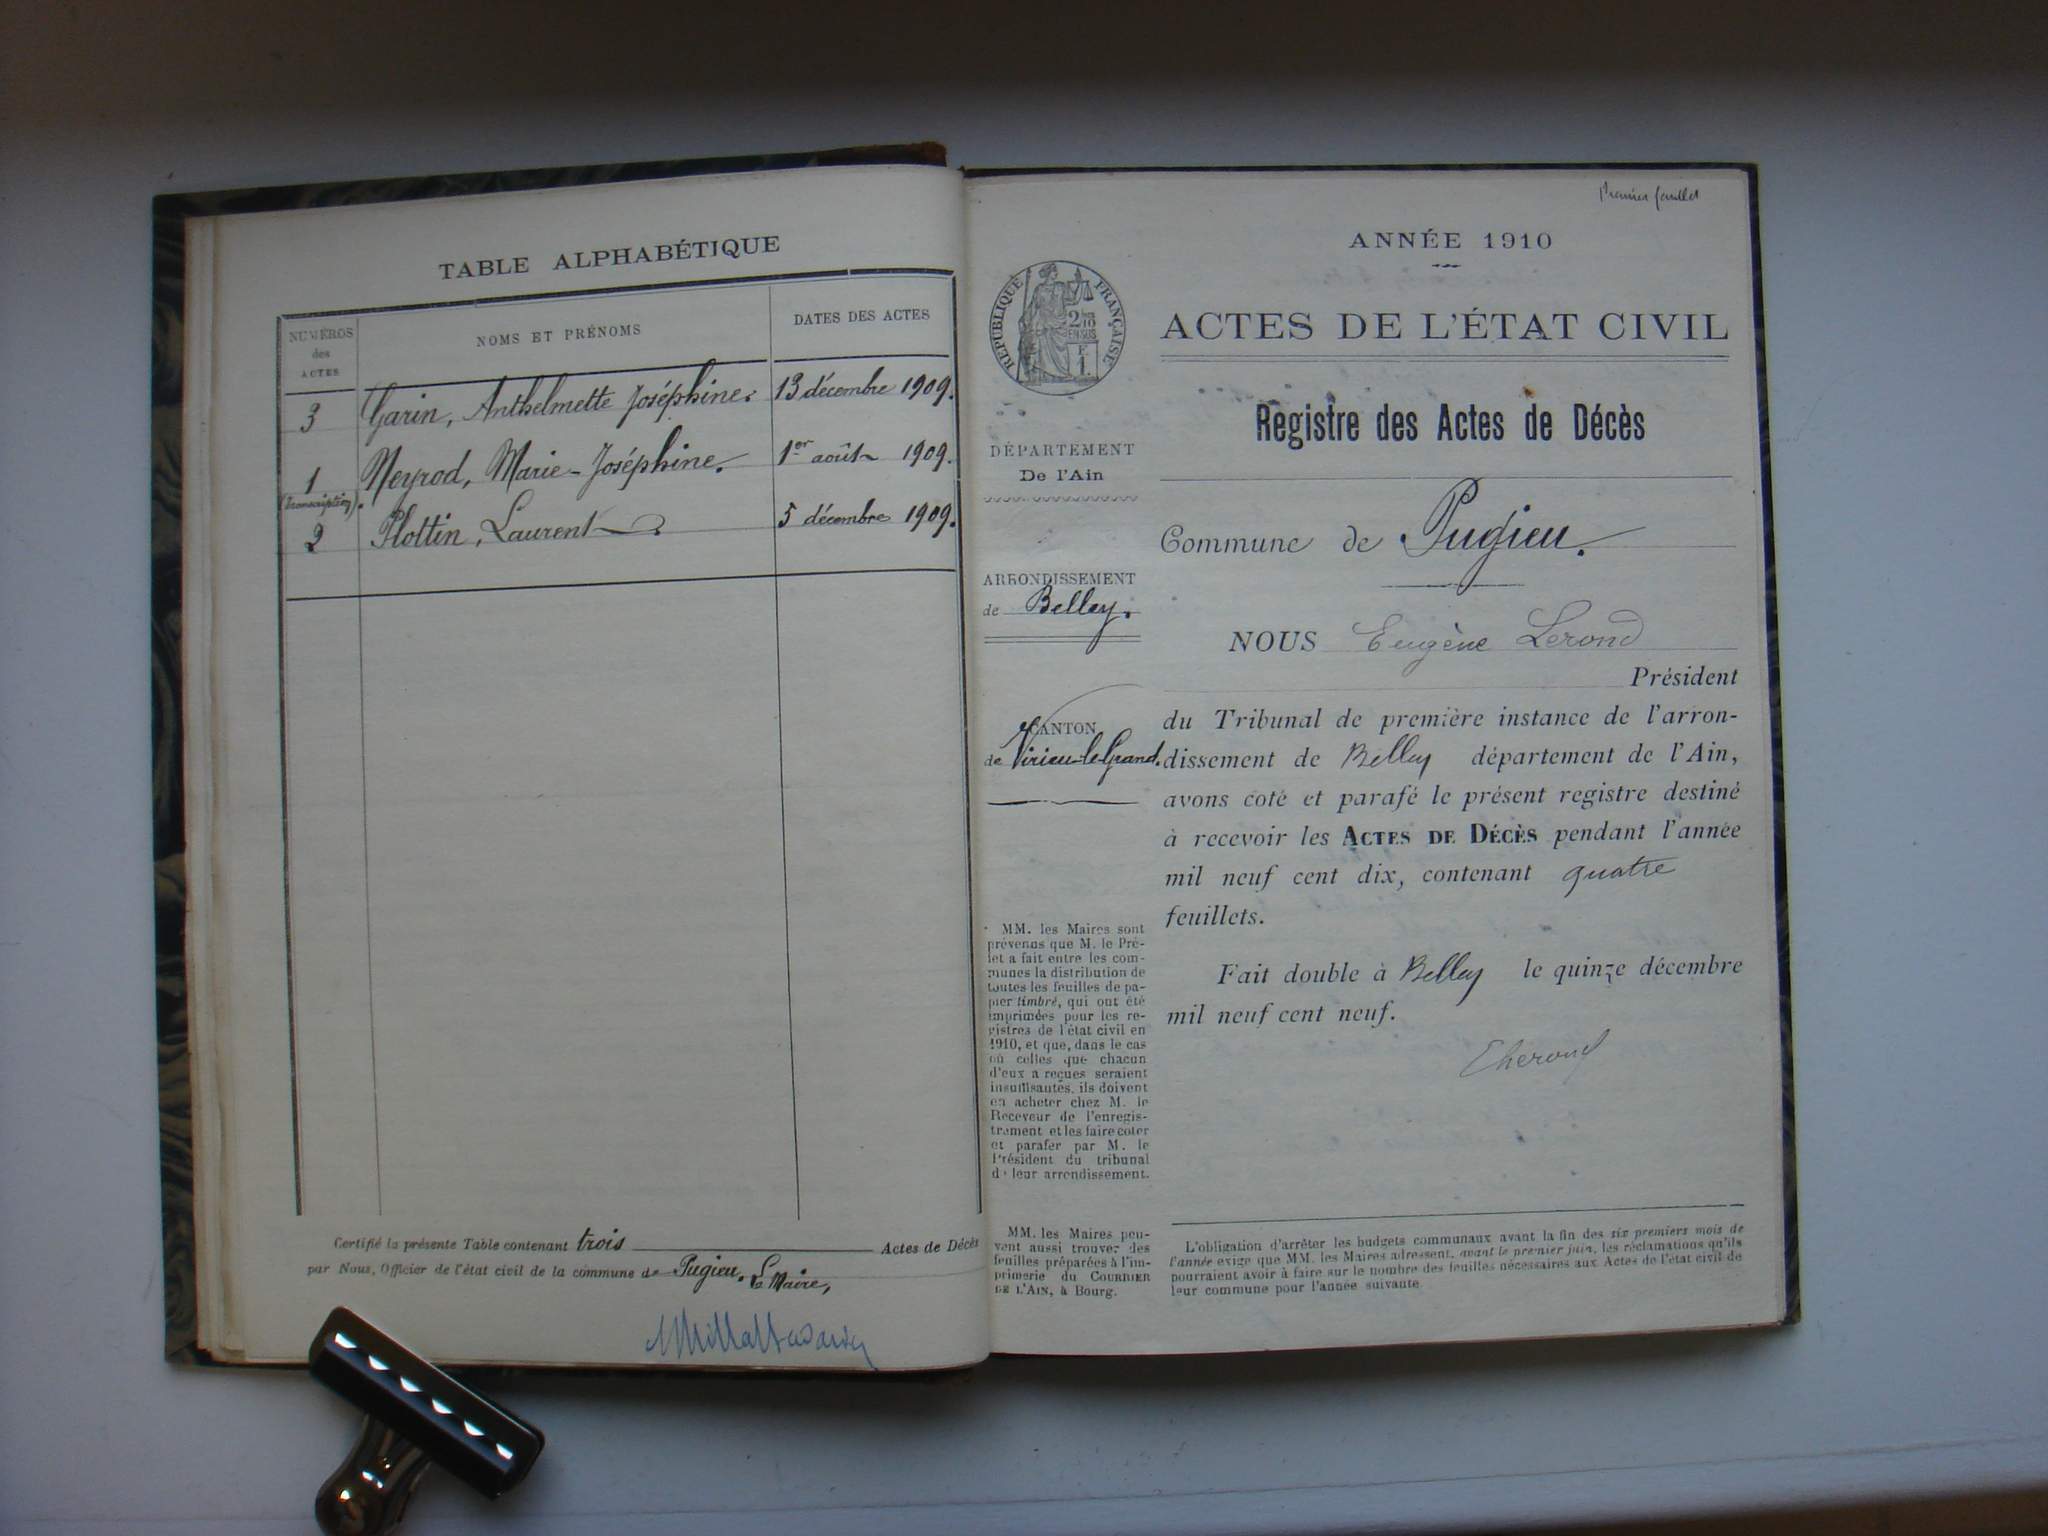 TABLE ALPHABÉTIQUE
NUMÉROS
des
ACTES
NOMS ET PRÉNOMS
DATES DES ACTES
3 Garin, Anthelmette Joséphine. 13 décembre 1909.
1 Neyrod, Marie-Joséphine. 1er août 1909.
(transcription).
2 Plottin, Laurent 5 décembre 1909.
Certifié la présente Table contenant trois Actes de Décès
par Nous, Officier de l'état civil de la commune de Pugieu. Le Maire,
Premier feuillet
ANNÉE 1910
RÉPUBLIQUE FRANÇAISE
2/10
EN SUS
F.
1.
ACTES DE L'ÉTAT CIVIL
Registre des Actes de Décès
DÉPARTEMENT
De l'Ain
Commune de Pugieu.
ARRONDISSEMENT
de Belley.
NOUS Eugène Lerond
Président
CANTON
de Virieu-le-Grand.
du Tribunal de première instance de l'arron-
dissement de Belley département de l'Ain,
avons coté et parafé le présent registre destiné
à recevoir les ACTES DE DÉCÈS pendant l'année
mil neuf cent dix, contenant quatre
feuillets.
Fait double à Belley le quinze décembre
mil neuf cent neuf.
MM. les Maires sont
prévenus que M. le Pré-
fet a fait entre les com-
munes la distribution de
toutes les feuilles de pa-
pier timbré, qui ont été
imprimées pour les re-
gistres de l'état civil en
1910, et que, dans le cas
où celles que chacun
d'eux a reçues seraient
insuffisantes, ils doivent
en acheter chez M. le
Receveur de l'enregis-
trement et les faire coter
et parafer par M. le
Président du tribunal
de leur arrondissement.
MM. les Maires peu-
vent aussi trouver des
feuilles préparées à l'im-
primerie du COURRIER
DE L'AIN, à Bourg.
L'obligation d'arrêter les budgets communaux avant la fin des six premiers mois de
l'année exige que MM. les Maires adressent, avant le premier juin, les réclamations qu'ils
pourraient avoir à faire sur le nombre des feuilles nécessaires aux Actes de l'état civil de
leur commune pour l'année suivante.